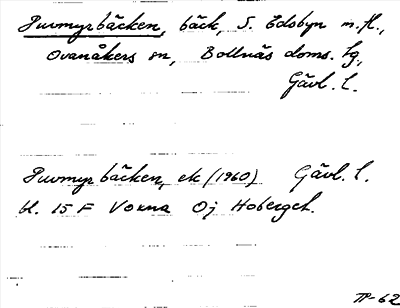 Purmyrbäcken, bäck, S. Edsbyn m.fl.,
Ovanåkers sn, Bollnäs doms. tg,
Gävl. l.
Purmyrbäcken, ek (1960) Gävl. l.
bl. 15 F Voxna Oj Hoberget.
TP-62